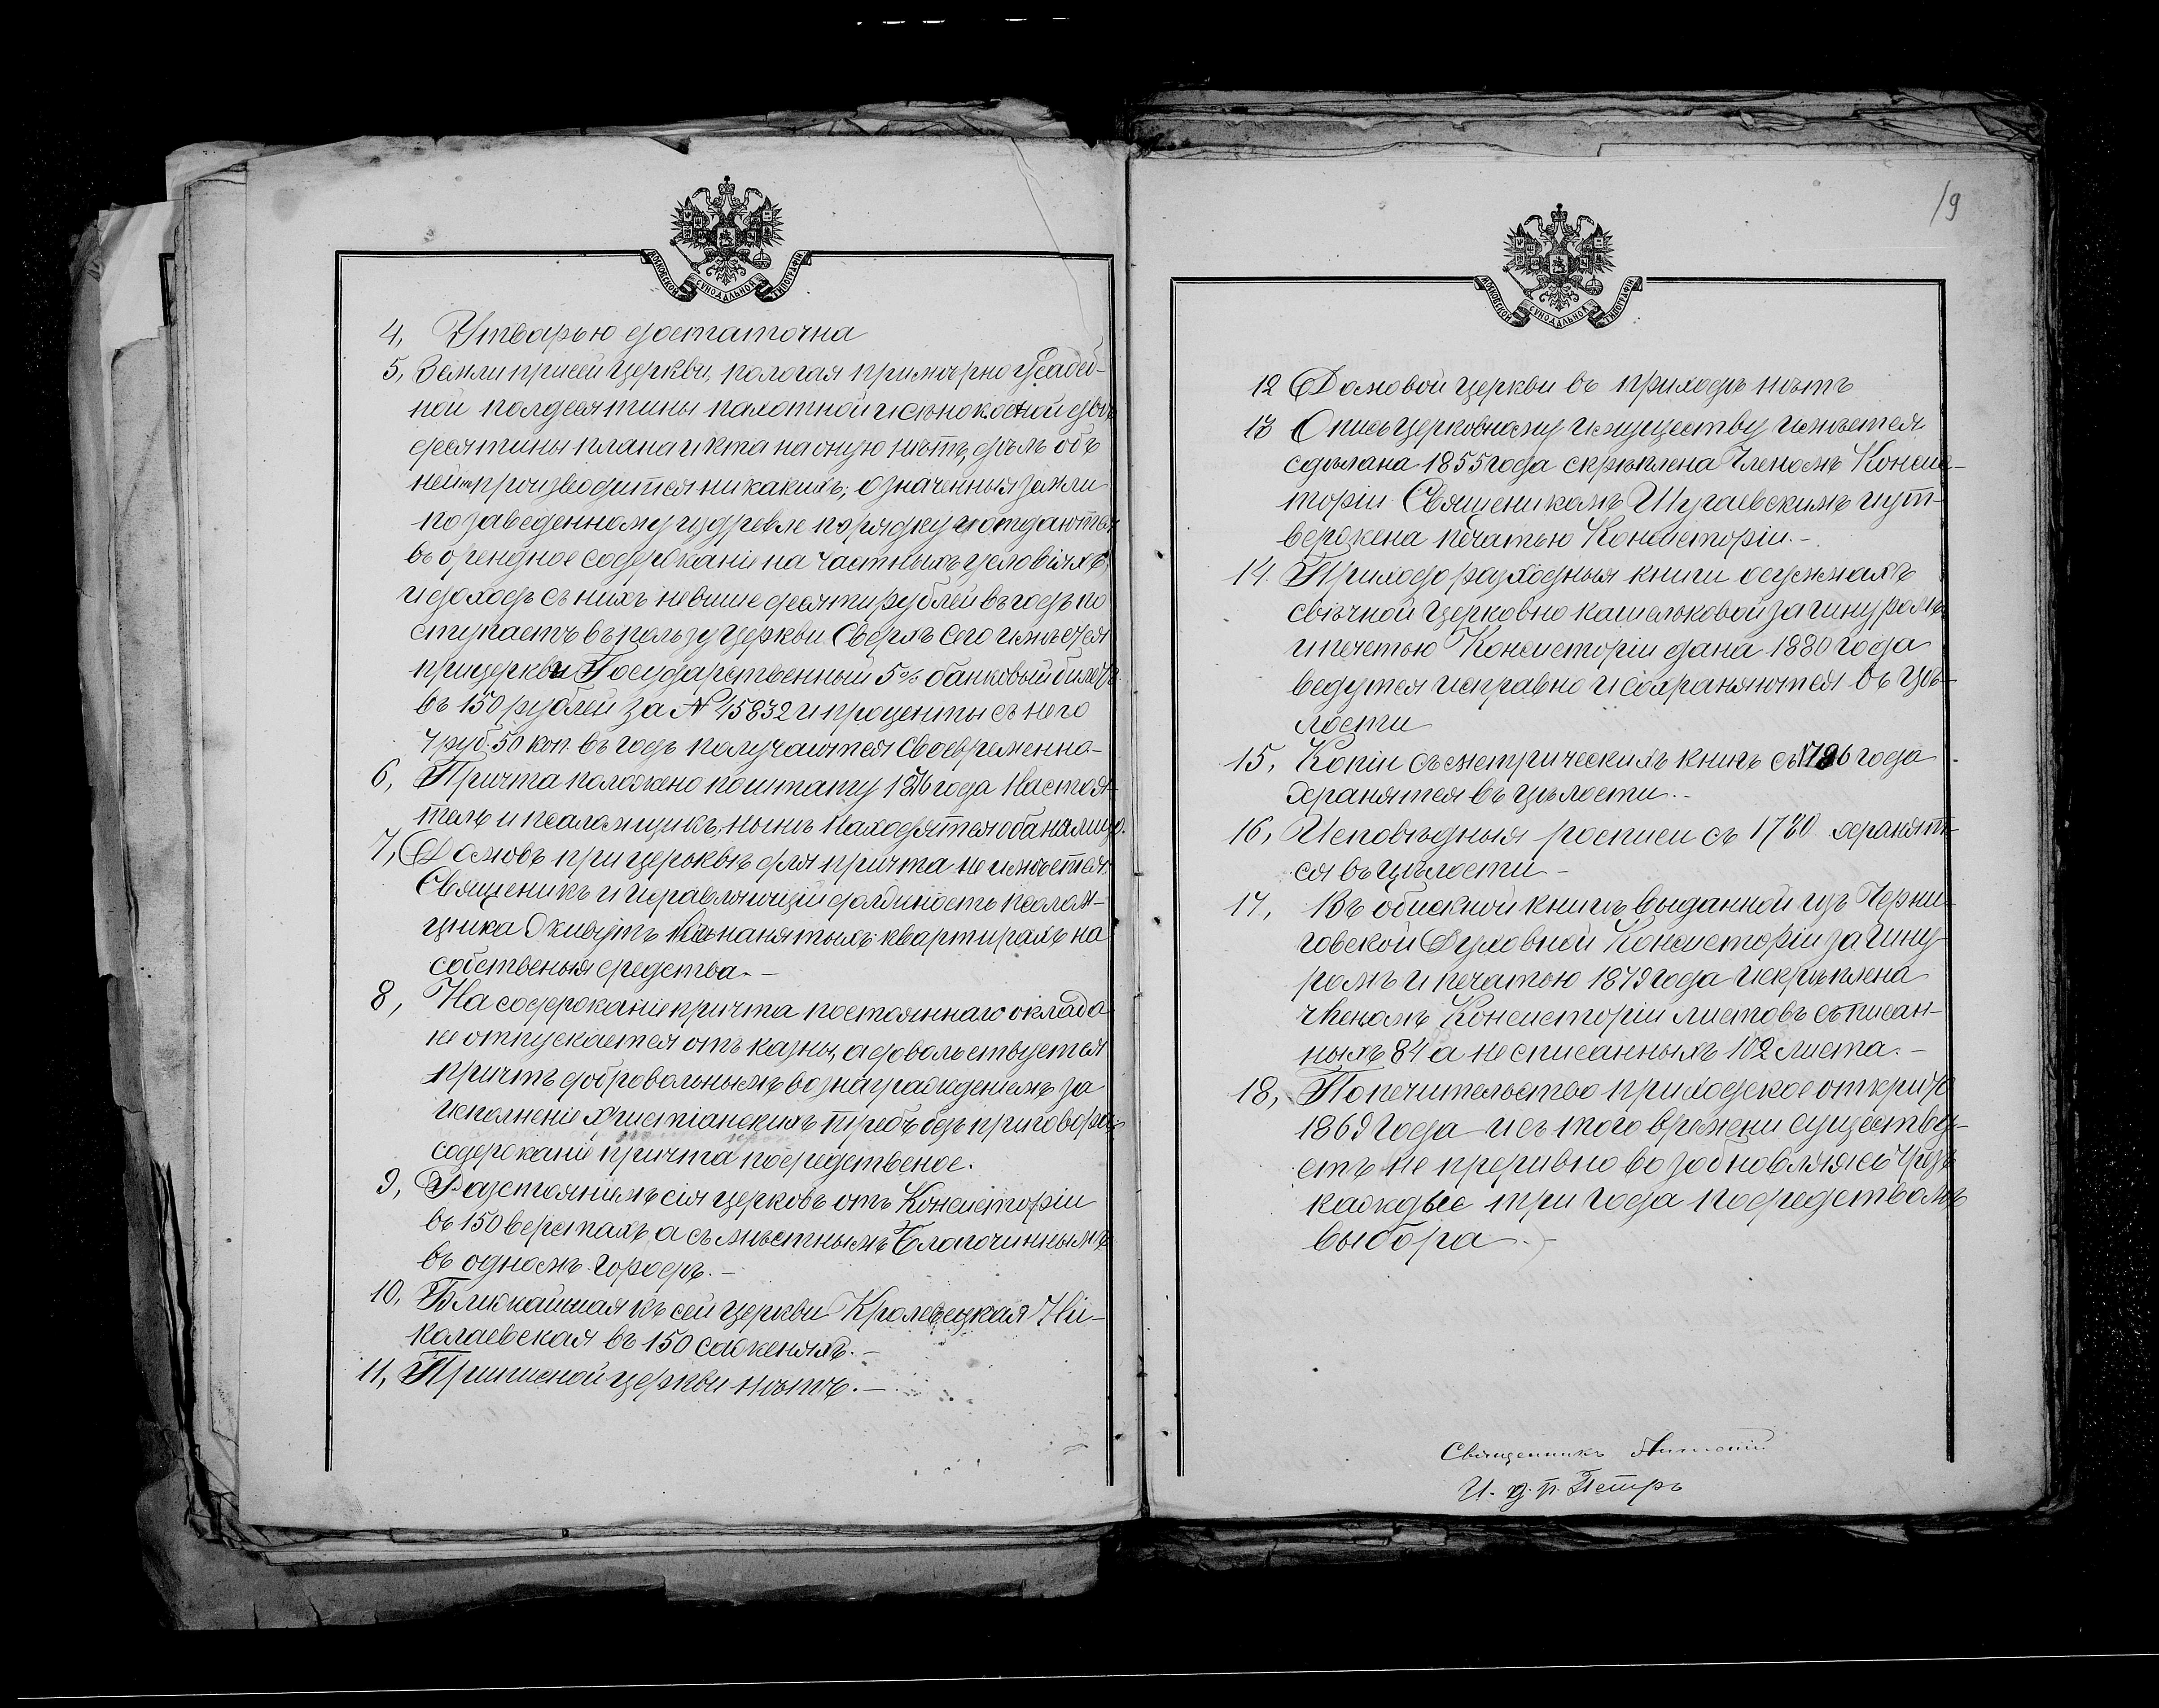 МОСКОВСКОЙ СѴНОДАЛЬНОЙ ТИПОГРАФІИ
4, Утварью достаточна
5, Земли при сей церкви, пологая примѣрно усадеб-
ной полдесятины пахотной и сѣнокосной двѣ
десятины плана и кта на оную нѣтъ, дѣлъ объ
ней не производится никакихъ; означенныя земли
по заведенному издревле порядку отдаются
въ орендное содержаніе на частныхъ условіяхъ,
и доходъ съ нихъ не выше десяти рублей въ годъ по
ступаетъ въ пользу церкви. Сверхъ сего имѣется
при церкви Государственный 5% банковый билетъ
въ 150 рублей за № 45832 и проценты съ него
7 руб. 50 коп. въ годъ получаются своевременно-
6, Причта положено по штату 1876 года Настоя-
тель и псаломщикъ, нынѣ находятся оба на лицо.
7, Домовъ при церьквѣ для причта не имѣется.
Священикъ и исравляющій должность псалом-
щика Живутъ на нанятыхъ квартирахъ на
собственыя средства. -
8, На содержаніе причта постояннаго оклада
не отпускается отъ казны, а довольствуется
причтъ добровольнымъ вознагражденіемъ за
исполнени христіанскихъ требъ безъ приговора,
содержаніе причта посредственое.
9, Разстояніемъ сія церковь отъ Консисторіи
въ 150 верстахъ а съ мѣстнымъ Благочиннымъ
въ одномъ городѣ. -
10, Ближайшая къ сей церкви Кролевецкая Ни-
колаевская въ 150 саженяхъ. -
11, Приписной церкви нѣтъ. -
19
МОСКОВСКОЙ СѴНОДАЛЬНОЙ ТИПОГРАФІИ
12 Домовой церкви въ приходѣ нѣтъ
13 Опись церковному имуществу имѣется.
сдѣлана 1855 года скрѣплена Членомъ Консис-
торіи Священикомъ Шугаевскимъ и ут-
верждена печатью Консисторіи. -
14. Приходо разходныя книги о суммахъ
свѣчной церковно кашельковой за шнуромъ
и печетью Консисторіи дана 1880 года
ведутся исправно и сохраняются въ цѣ-
лости
15, Копіи съ метрическихъ книгъ съ года
хранятся въ цѣлости. -
16, Исповѣдныя росписи съ 1780 хранят-
ся въ цѣлости -
17, Въ обискной книгѣ выданной изъ Черни-
говской Духовной Консисторіи за шну-
ромъ и печатью 1879 года и скрѣплена
членомъ Консисторіи листовъ съписан-
ныхъ 84 а не списанныхъ 102 листа. -
18, Попечительство приходское открито
1869 года и съ того времени существу-
етъ не преривно возобновляясь чрезъ
каждые три года посредствомъ
выбора. -
Священникъ Антоній
И. д. п. Петръ